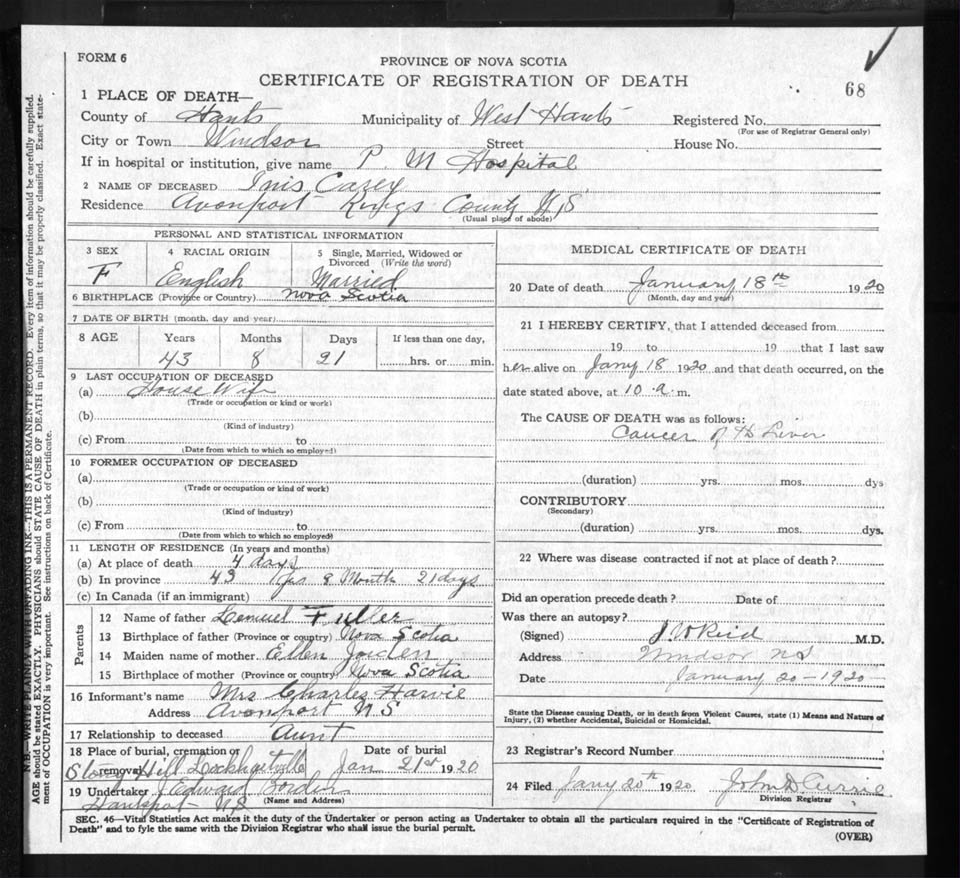 FORM 6
PROVINCE OF NOVA SCOTIA
CERTIFICATE OF REGISTRATION OF DEATH
68
1 PLACE OF DEATH—
County of Hants Municipality of West Hants Registered No.
(For use of Registrar General only)
City or Town Windsor Street House No.
If in hospital or institution, give name P. M Hospital
2 NAME OF DECEASED Inis Carey
Residence Avonport Kings County N S
(Usual place of abode)
PERSONAL AND STATISTICAL INFORMATION
3 SEX 4 RACIAL ORIGIN 5 Single, Married, Widowed or Divorced (Write the word)
F English Married
6 BIRTHPLACE (Province or Country) Nova Scotia
7 DATE OF BIRTH (month, day and year)
8 AGE Years Months Days If less than one day,
43 8 21 hrs. or min.
9 LAST OCCUPATION OF DECEASED
(a) House Wife
(Trade or occupation or kind or work)
(b)
(Kind of industry)
(c) From to
(Date from which to which so employed)
10 FORMER OCCUPATION OF DECEASED
(a)
(Trade or occupation or kind of work)
(b)
(Kind of industry)
(c) From to
(Date from which to which so employed)
11 LENGTH OF RESIDENCE (In years and months)
(a) At place of death 4 days
(b) In province 43 yrs 8 Month 21 days
(c) In Canada (if an immigrant)
Parents
12 Name of father Lemuel Fuller
13 Birthplace of father (Province or country) Nova Scotia
14 Maiden name of mother Ellen Jorden
15 Birthplace of mother (Province or country) Nova Scotia
16 Informant's name Mrs Charles Harvie
Address Avonport N S
17 Relationship to deceased Aunt
18 Place of burial, cremation or removal Date of burial
Stoney Hill Lockhartville Jan 21st 1920
19 Undertaker J Edward Borden
(Name and Address)
Hantsport NS
MEDICAL CERTIFICATE OF DEATH
20 Date of death January 18th 1920
(Month, day and year)
21 I HEREBY CERTIFY, that I attended deceased from
19 to 19 that I last saw
her alive on Jany 18 1920 and that death occurred, on the
date stated above, at 10 a m.
The CAUSE OF DEATH was as follows:
Cancer of the Liver
(duration) yrs. mos. dys
CONTRIBUTORY
(Secondary)
(duration) yrs. mos. dys.
22 Where was disease contracted if not at place of death?
Did an operation precede death? Date of
Was there an autopsy?
(Signed) J W Reid M.D.
Address Windsor NS
Date January 20-1920-
State the Disease causing Death, or in death from Violent Causes, state (1) Means and Nature of
Injury, (2) whether Accidental, Suicidal or Homicidal.
23 Registrar's Record Number
24 Filed Jany 20th 1920 John D Currie
Division Registrar
SEC. 46—Vital Statistics Act makes it the duty of the Undertaker or person acting as Undertaker to obtain all the particulars required in the "Certificate of Registration of
Death" and to fyle the same with the Division Registrar who shall issue the burial permit.
(OVER)
N.B.—WRITE PLAINLY WITH UNFADING INK—THIS IS A PERMANENT RECORD. Every item of information should be carefully supplied.
AGE should be stated EXACTLY. PHYSICIANS should STATE CAUSE OF DEATH in plain terms, so that it may be properly classified. Exact state-
ment of OCCUPATION is very important. See instructions on back of Certificate.